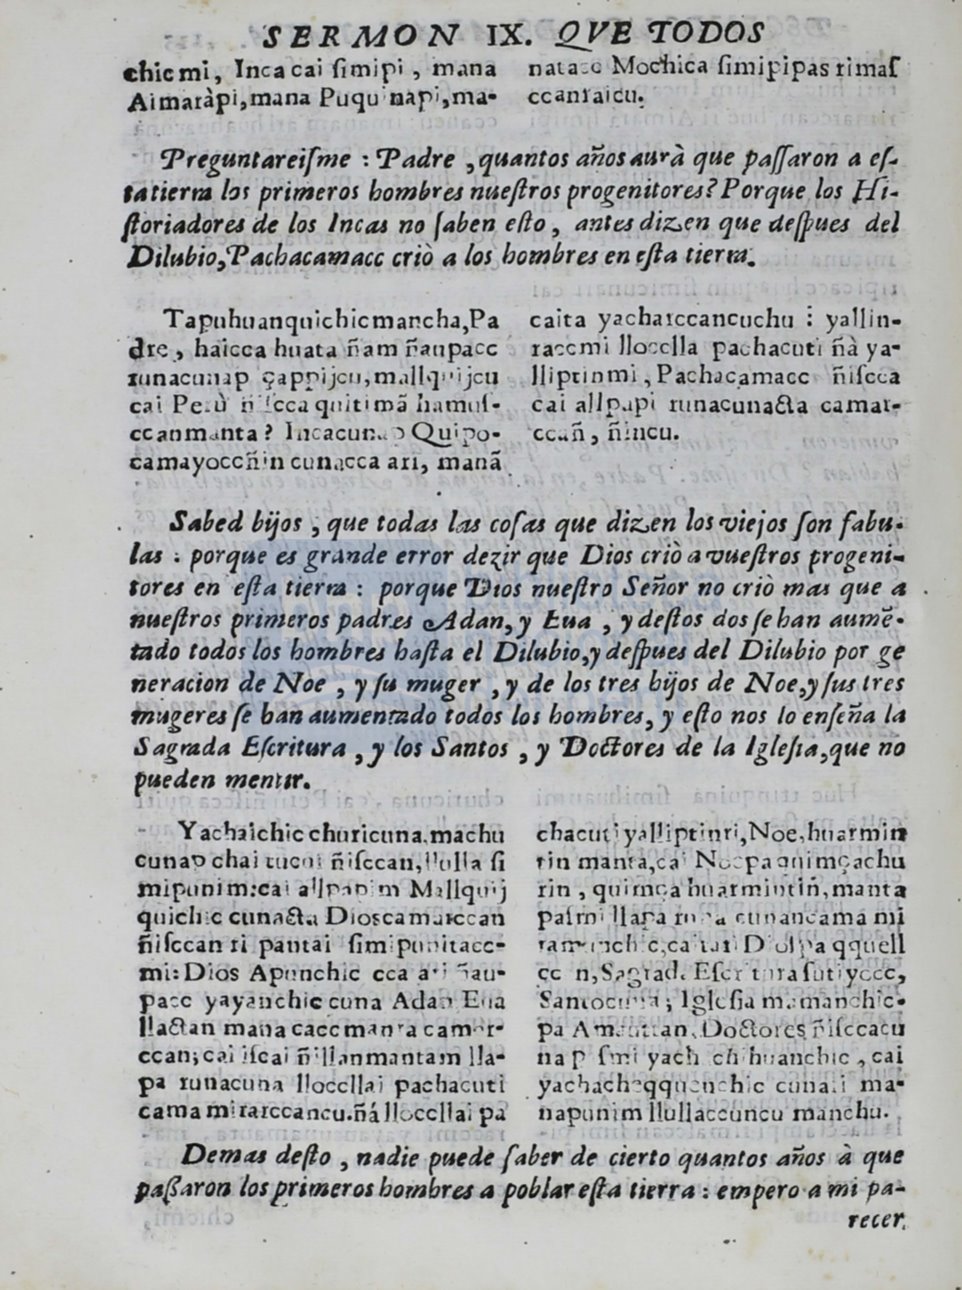 SERMON IX. QVE TODOS
chic mi, Inca cai ſimipi, mana
Aimaràpi, mana Puquinapi, ma-
natacc Mochica ſimipipas rimaſ
ccanraicu.
Preguntareiſme : Padre, quantos años aurà que paſſaron a eſ-
ta tierra los primeros hombres nueſtros progenitores? Porque los Hi-
ſtoriadores de los Incas no ſaben eſto, antes dizen que deſpues del
Dilubio, Pachacamacc criò a los hombres en eſta tierra.
Tapuhuanquichicmancha, Pa
dre, haicca huata ñam ñaupacc
runacunap çappijcu, mallquijcu
cai Perù ñiſcca quitimã hamuſ-
ccanmanta? Incacunap Quipo-
camayocc ñin cunacca ari, manã
caita yacharccancuchu : yallin-
raccmi lloccllа pachacuti ñà ya-
lliptinmi, Pachacamacc ñiſcca
cai allpapi runacunacta camar-
ccañ, ñincu.
Sabed hijos, que todas las coſas que dizen los viejos ſon fabu-
las : porque es grande error dezir que Dios criò a vueſtros progeni-
tores en eſta tierra : porque Dios nueſtro Señor no criò mas que a
nueſtros primeros padres Adan, y Eua, y deſtos dos ſe han aumẽ-
tado todos los hombres haſta el Dilubio, y deſpues del Dilubio por ge
neracion de Noe, y ſu muger, y de los tres hijos de Noe, y ſus tres
mugeres ſe han aumentado todos los hombres, y eſto nos lo enſeña la
Sagrada Eſcritura, y los Santos, y Doctores de la Igleſia, que no
pueden mentir.
Yachaichic churicuna, machu
cunap chai tucui ñiſccan, llulla ſi
mipunim: cai allpapim Mallquij
quichic cunacta Dios camarccan
ñiſccan ri pantai ſimipunitacc-
mi: Dios Apunchic cca ari ñau-
pacc yayanchic cuna Adan Eua
llactan mana caccmanta camar-
ccan; cai iſcai ñillanmantam lla-
pa runacuna lloccllai pachacuti
cama mirarccancu. ñá lloccllai pa
chacuti yalliptinri, Noe, huarmin
tin manta, cai Noepa quimçachu
rin, quimça huarmintiñ, manta
paſmi llapa runa cunancama mi
cai Diospa qquell
Sagrada Eſcritura ſutiyocc,
Santocuna, Igleſia mamanchic-
pa Doctores ñiſccacu
na huanchic, cai
ma-
napunim llullaccuncu manchu.
Demas deſto, nadie puede ſaber de cierto quantos años à que
paſſaron los primeros hombres a poblar eſta tierra : empero a mi pa-
recer,